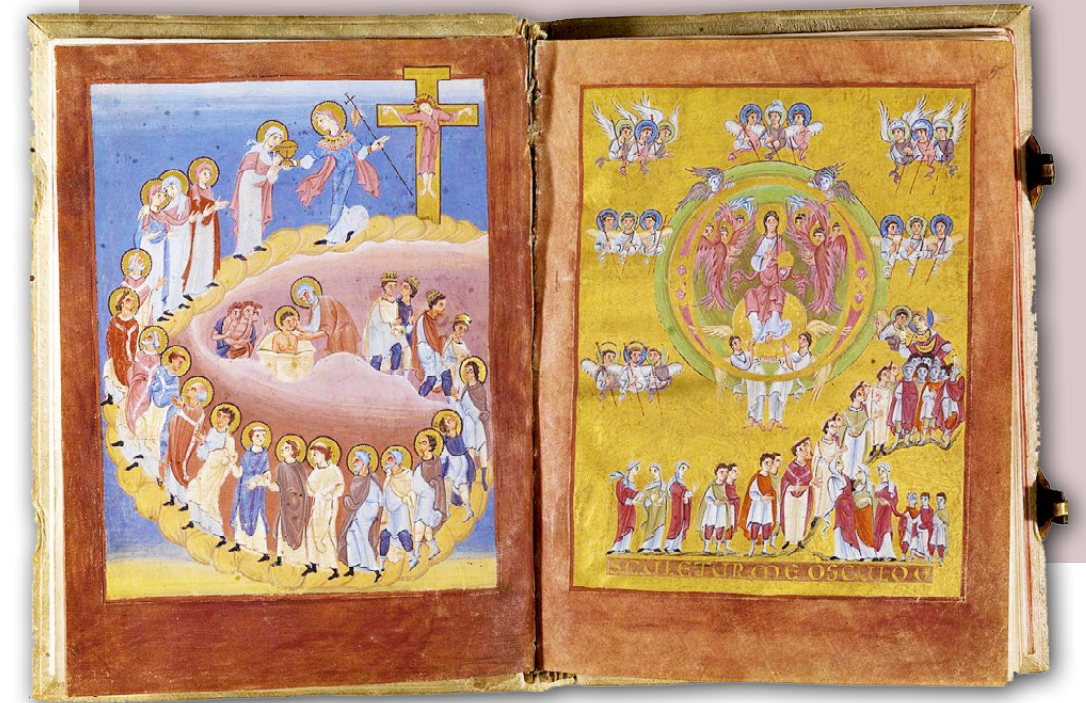 SCULETUR ME OSCULO